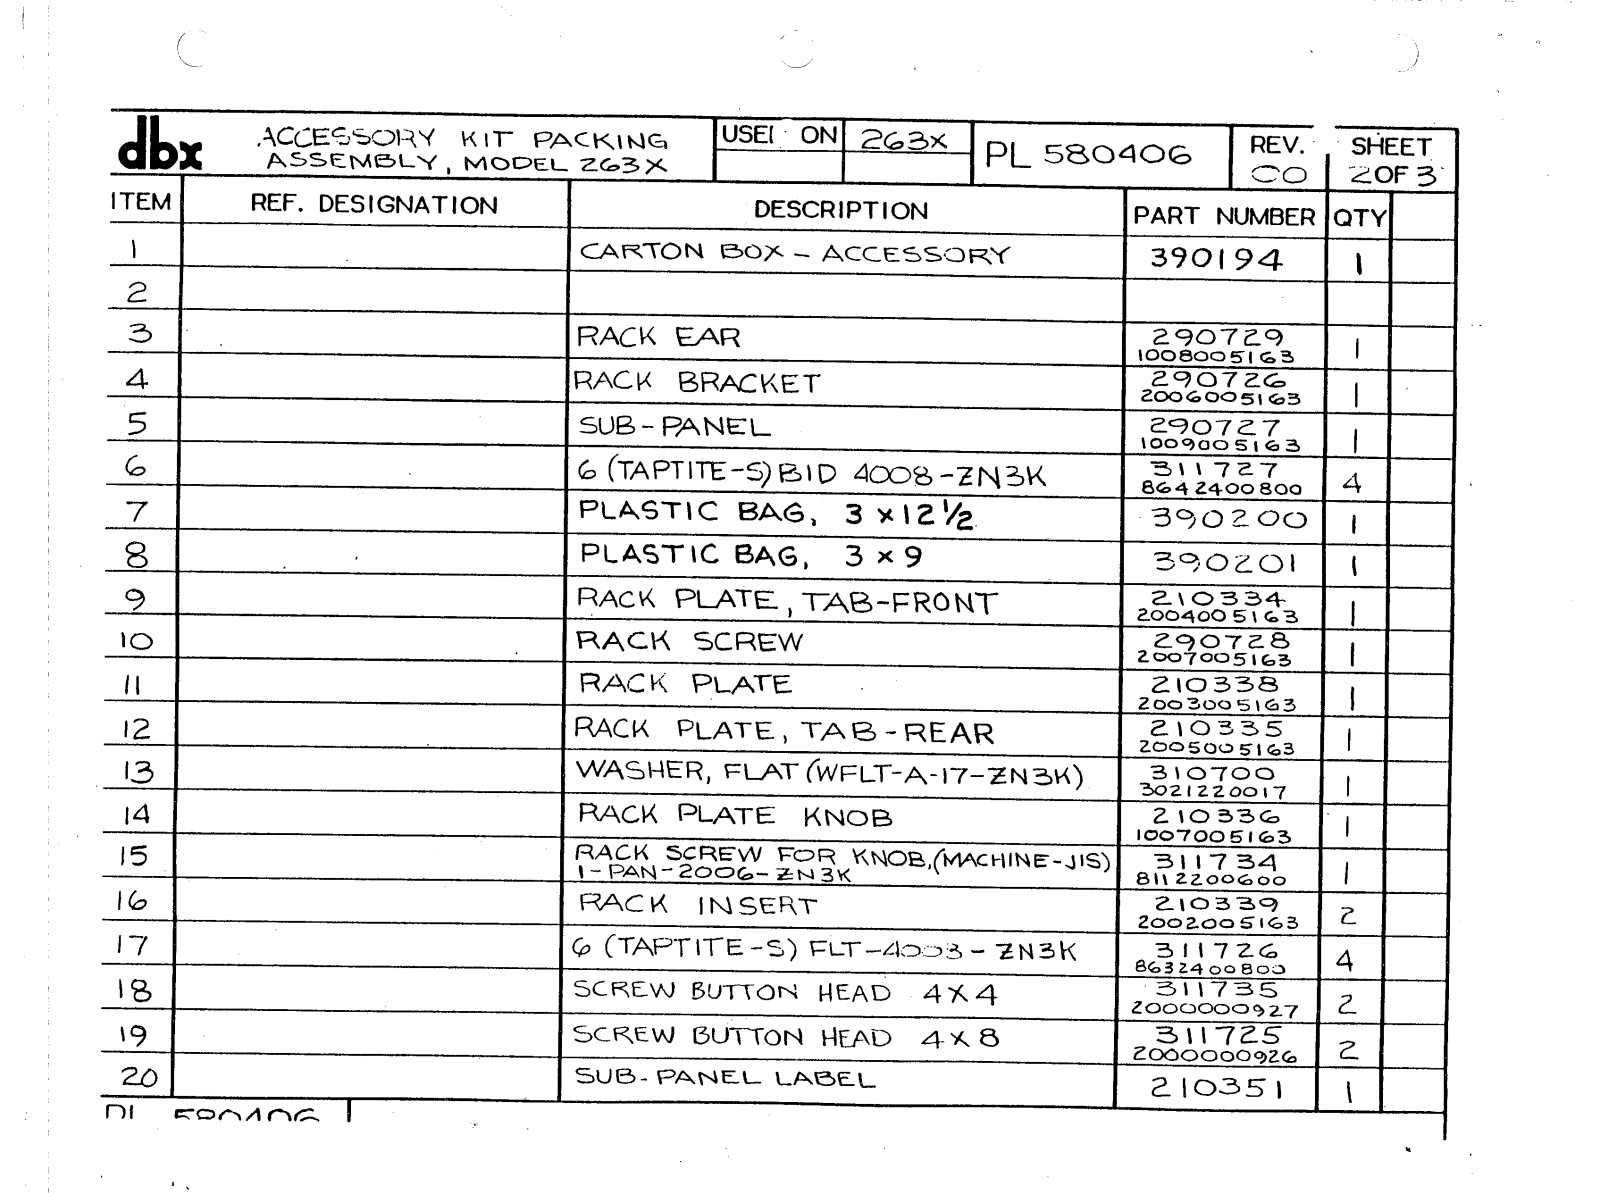 dbx ACCESSORY KIT PACKING ASSEMBLY, MODEL 263X USE ON 263X PL 580406 REV. CO SHEET 2 OF 3
ITEM REF. DESIGNATION DESCRIPTION PART NUMBER QTY
1 CARTON BOX - ACCESSORY 390194 1
2
3 RACK EAR 290729 1
1008005163
4 RACK BRACKET 290726 1
2006005163
5 SUB-PANEL 290727 1
1009005163
6 6 (TAPTITE-S) BID 4008-ZN3K 311727 4
8642400800
7 PLASTIC BAG, 3 x 12 1/2 390200 1
8 PLASTIC BAG, 3 x 9 390201 1
9 RACK PLATE, TAB-FRONT 210334 1
2004005163
10 RACK SCREW 290728 1
2007005163
11 RACK PLATE 210338 1
2003005163
12 RACK PLATE, TAB-REAR 210335 1
2005005163
13 WASHER, FLAT (WFLT-A-17-ZN3K) 310700 1
3021220017
14 RACK PLATE KNOB 210336 1
1007005163
15 RACK SCREW FOR KNOB, (MACHINE-JIS) 311734 1
1-PAN-2006-ZN3K 8112200600
16 RACK INSERT 210339 2
2002005163
17 6 (TAPTITE-S) FLT-4008-ZN3K 311726 4
8632400800
18 SCREW BUTTON HEAD 4X4 311735 2
2000000927
19 SCREW BUTTON HEAD 4X8 311725 2
2000000926
20 SUB-PANEL LABEL 210351 1
PL 580406